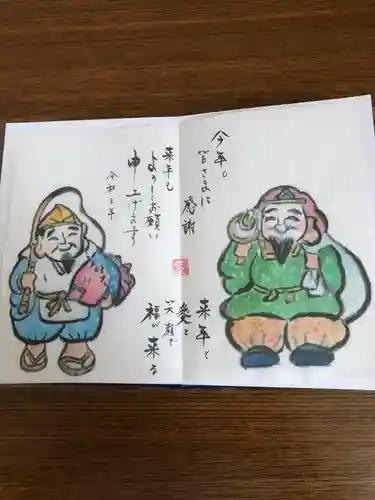 今年も
皆さまに
感謝
来年も
愛と
笑顔で
福が来る
来年も
よろしくお願い
申し上げます